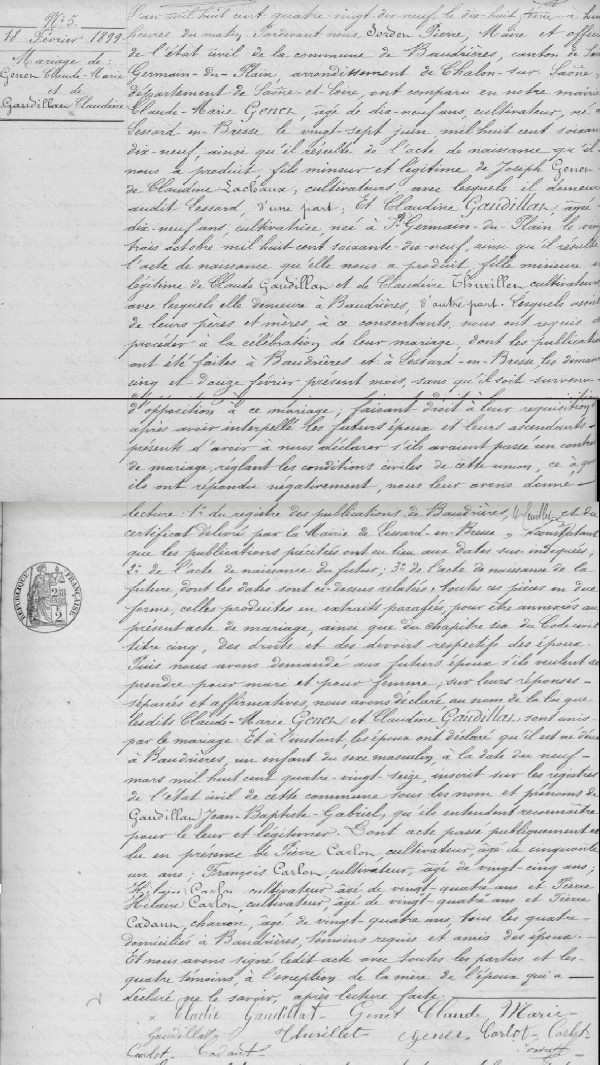 N° 5.
18 Février 1899
Mariage de:
Genet Claude-Marie
et de
Gaudillat Claudine
L'an mil huit cent quatre vingt-dix-neuf le dix-huit
heures du matin, Pardevant nous, Pierre, Maire et officier
de l'état civil de la commune de Baudrières, canton de Saint
Germain-du-Plain, arrondissement de Chalon-sur-Saône,
département de Saône-et-Loire, ont comparu en notre mairie
Claude-Marie Genet, âgé de dix-neuf ans, cultivateur, né à
Lessard-en-Bresse le vingt-sept juin mil huit cent soixante
dix-neuf, ainsi qu'il résulte de l'acte de naissance qu'il
nous a produit, fils mineur et légitime de Joseph Genet
de Claudine, cultivateurs, avec lesquels il demeure
audit Lessard, d'une part; Et Claudine Gaudillat, âgée
dix-neuf ans, cultivatrice, née à St Germain-du-Plain le vingt
trois octobre mil huit cent soixante-dix-neuf, ainsi qu'il résulte
l'acte de naissance qu'elle nous a produit, fille mineure et
légitime de Claude Gaudillat et de Claudine cultivateurs
avec lesquels elle demeure à Baudrières, d'autre part. Lesquels
de leurs pères et mères, à ce consentants, nous ont requis de
procéder à la célébration de leur mariage, dont les publications
ont été faites à Baudrières et à Lessard-en-Bresse, les dimanches
cinq et douze février présent mois, sans qu'il soit survenu
d'opposition à ce mariage; faisant droit à leur requisition,
après avoir interpellé les futurs époux et leurs ascendants
présents d'avoir à nous déclarer s'ils avaient passé un contrat
de mariage, réglant les conditions civiles de cette union, ce à quoi
ils ont répondu négativement, nous leur avons donné
lecture: 1° du registre des publications de Baudrières, et du
certificat délivré par la Mairie de Lessard-en-Bresse, constatant
que les publications précitées ont eu lieu aux dates sus-indiquées;
2° de l'acte de naissance du futur; 3° de l'acte de naissance de la
future, dont les dates sont ci-dessus relatées; toutes ces pièces en due
forme, celles produites en extraits parafées, pour être annexées au
présent acte de mariage, ainsi que du chapitre six du Code civil
titre cinq, des droits et des devoirs respectifs des époux.
Puis nous avons demandé aux futurs époux s'ils veulent se
prendre pour mari et pour femme; sur leurs réponses
séparées et affirmatives, nous avons déclaré, au nom de la loi que
lesdits Claude-Marie Genet et Claudine Gaudillat sont unis
par le mariage. Et à l'instant, les époux ont déclaré qu'il est né d'eux
à Baudrières, un enfant du sexe masculin, à la date du neuf
mars mil huit cent quatre-vingt-seize, inscrit sur les registres
de l'état civil de cette commune sous les nom et prénoms de
Gaudillat Jean-Baptiste-Gabriel, qu'ils entendent reconnaître
pour le leur et légitimer. Dont acte passé publiquement et
lu en présence de Pierre Carlot, cultivateur, âgé de cinquante
un ans; François Carlot, cultivateur, âgé de vingt-cinq ans;
Hilaire Carlot cultivateur âgé de vingt-quatre ans et Pierre
Hilaire Carlot cultivateur, âgé de vingt-quatre ans et Pierre
Cadant, charron, âgé de vingt-quatre ans, tous les quatre
domiciliés à Baudrières, témoins requis et amis des époux.
Et nous avons signé ledit acte avec toutes les parties et les
quatre témoins, à l'exception de la mère de l'époux qui a
déclaré ne le savoir, après lecture faite.
Gaudillat Genet Claude Marie
Gaudillat Genet Carlot Carlot
Carlot Cadant
RÉPUBLIQUE FRANÇAISE